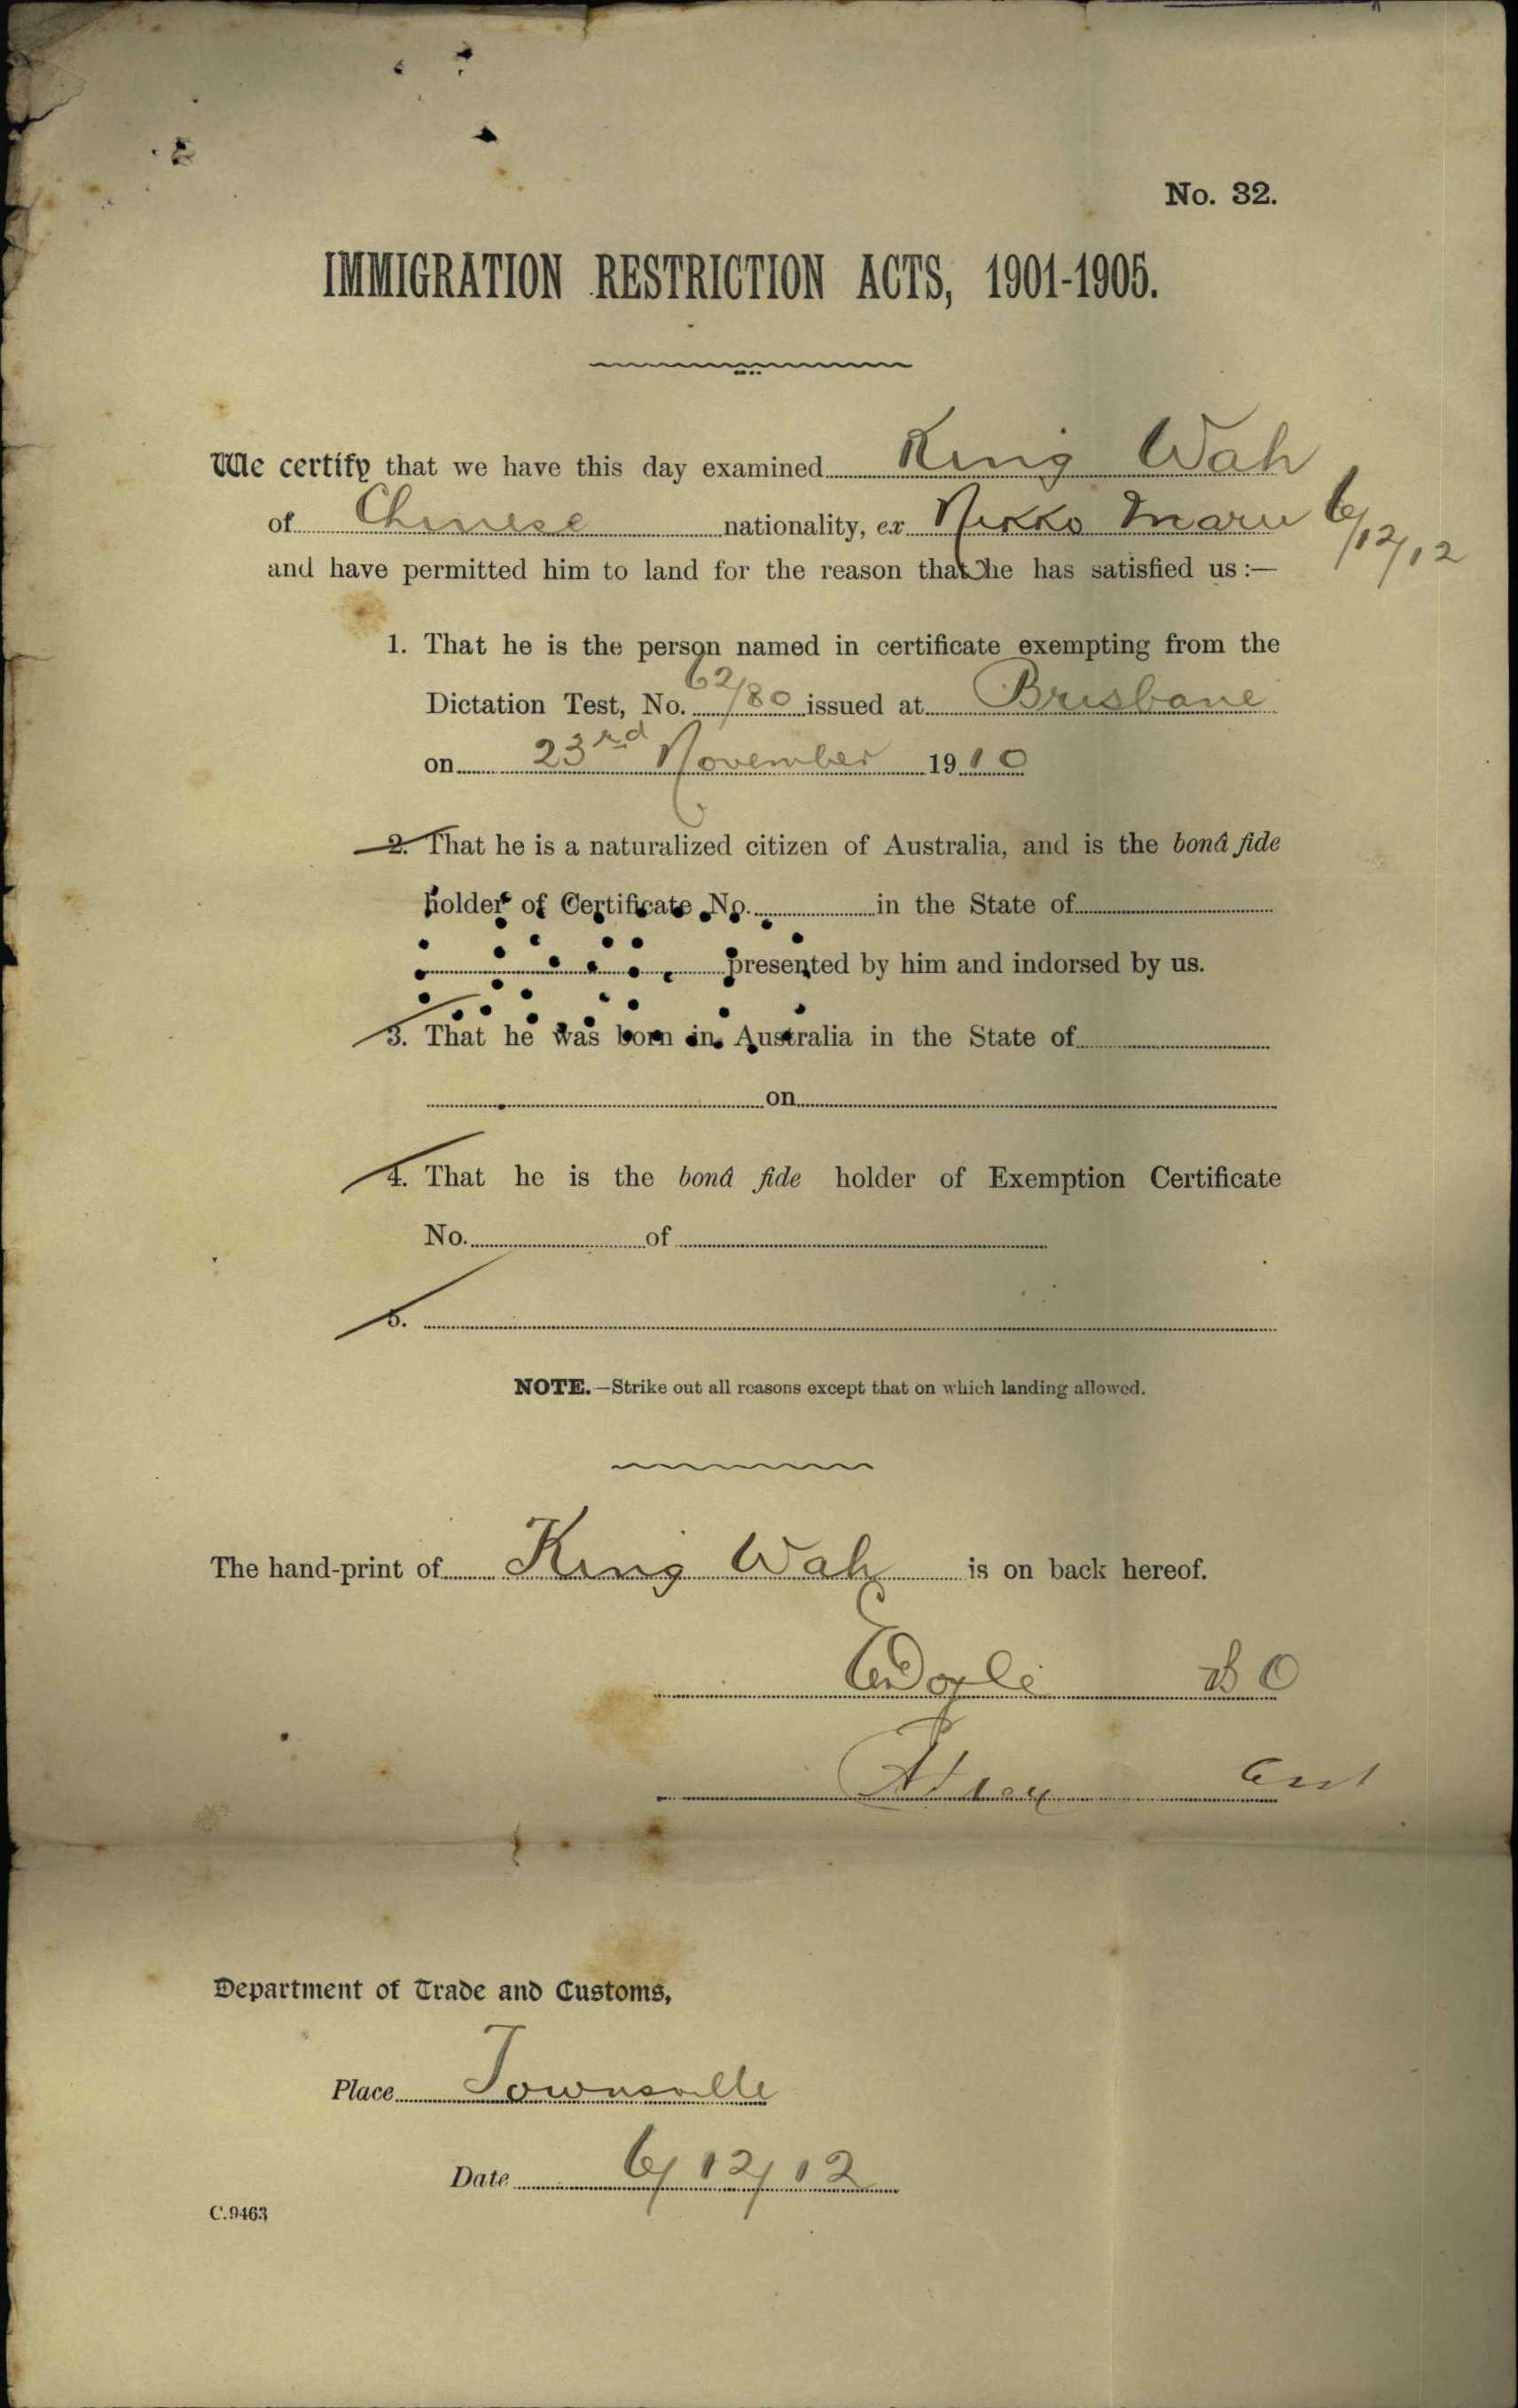 No. 32.
IMMIGRATION RESTRICTION ACTS, 1901-1905.
We certify that we have this day examined King Wah
of Chinese nationality, ex Nikko Maru 6/12/12
and have permitted him to land for the reason that he has satisfied us :—
1. That he is the person named in certificate exempting from the
Dictation Test, No. 62/80 issued at Brisbane
on 23rd November 1910
2. That he is a naturalized citizen of Australia, and is the bonâ fide
holder of Certificate No. in the State of
presented by him and indorsed by us.
3. That he was born in Australia in the State of
on
4. That he is the bonâ fide holder of Exemption Certificate
No. of
5.
NOTE.—Strike out all reasons except that on which landing allowed.
The hand-print of King Wah is on back hereof.
Doyle
Department of Trade and Customs,
Place Townsville
Date 6/12/12
C.9463